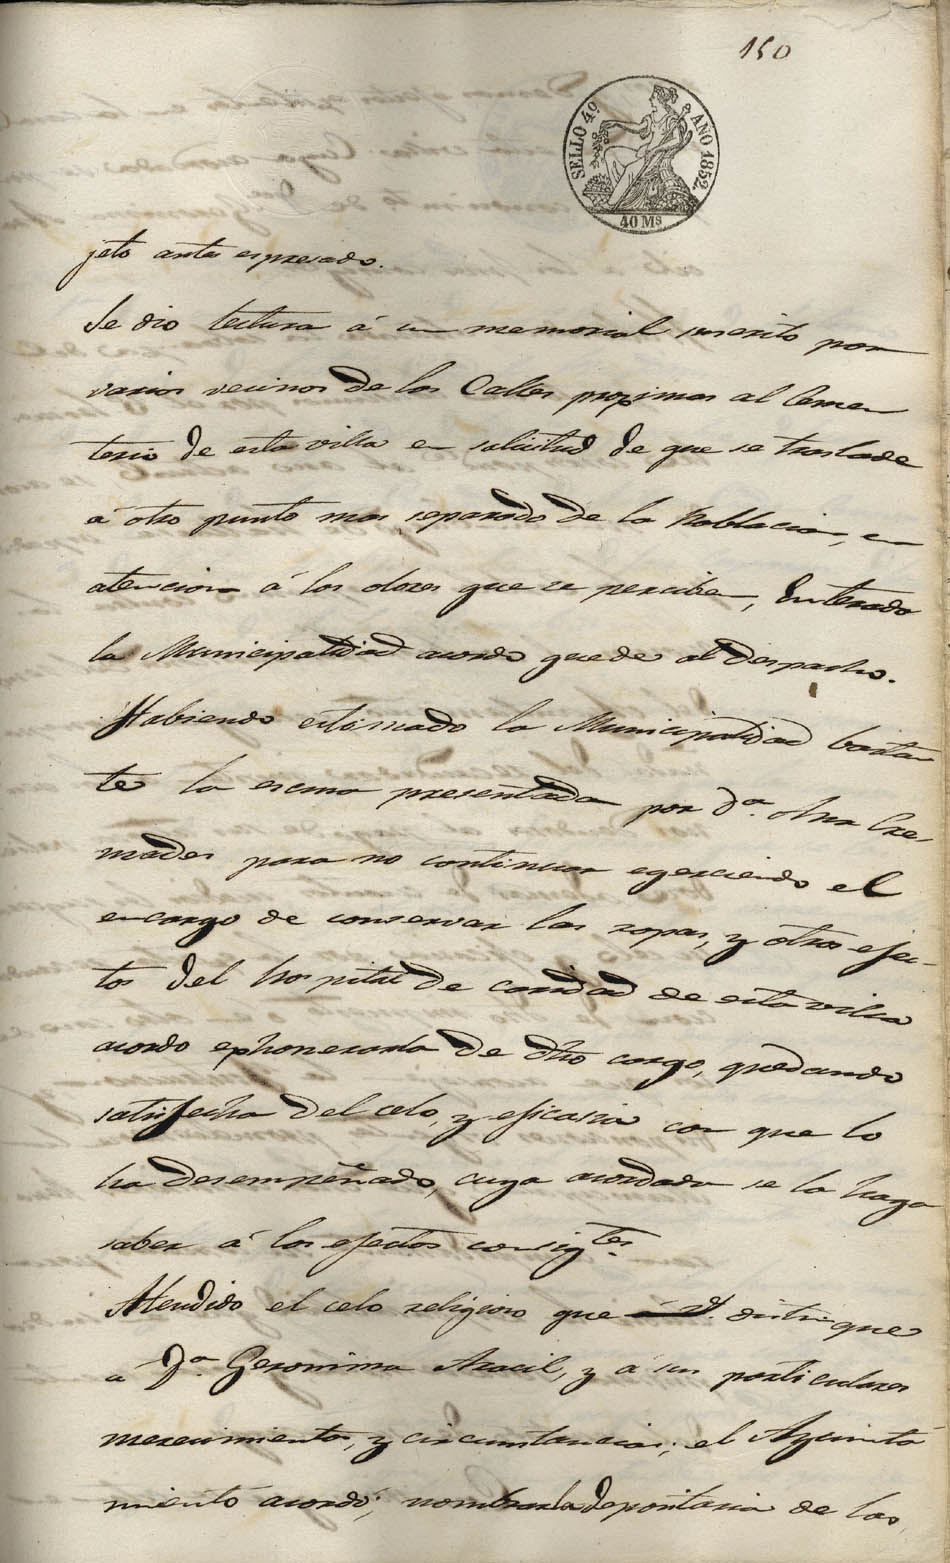 150
SELLO 4º AÑO 1852.
40 Ms
jeto antes espresado.
Se dio lectura á un memorial suscrito por
varios vecinos de las Calles proximas al Cemen
terio de esta villa en solicitud de que se traslade
á otro punto mas separado de la Poblacion, en
atencion á los olores que se perciben, Enterado
la Municipalidad acordo quede al despacho.
Habiendo estimado la Municipalidad bastan
te la escusa presentada por Dª. Ana Cre-
mades para no continuar egerciendo el
encargo de conservar las ropas, y otros efec-
tos del hospital de caridad de esta villa
acordo exhonerarla de dho cargo, quedando
satisfecha del celo, y eficasia con que lo
ha desempeñado, cuya acordada se la haga
saber á los efectos consigtes.
Atendido el celo religioso que distingue
a Dª. Geronima Aracil, y á sus particulares
merecimientos, y circunstancias; el Ayunta
miento acordó; nombrarla depositaria de las